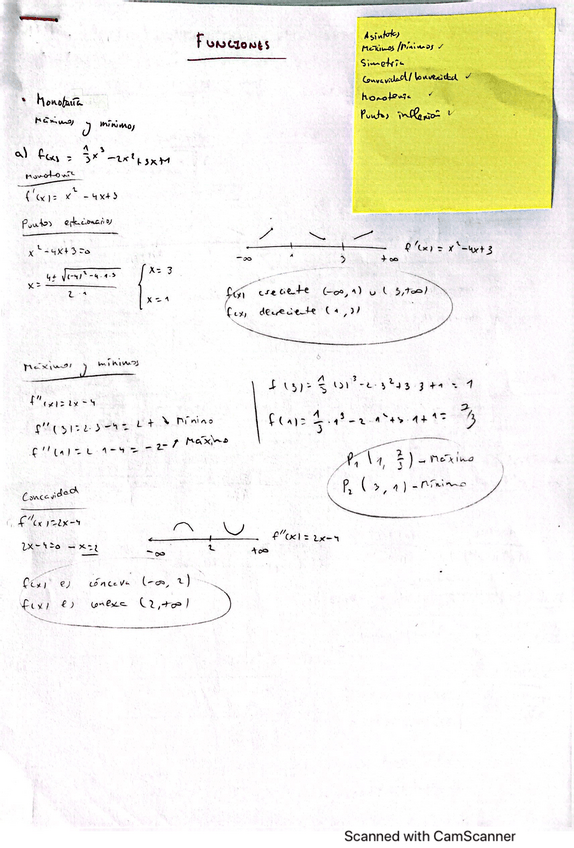 FUNCIONES
Asíntotas
Máximos/Mínimos ✓
Simetría
Concavidad/Convexidad ✓
Monotonía ✓
Puntos inflexión ✓
• Monotonía
Máximos y mínimos
a) f(x) = 1/3 x³ - 2x² + 3x + 1
Monotonía
f'(x) = x² - 4x + 3
Puntos estacionarios
x² - 4x + 3 = 0
x = 4 ± √(-4)² - 4·1·3 / 2·1 { x = 3
x = 1
-∞ 1 3 +∞ f'(x) = x² - 4x + 3
f(x) creciente (-∞, 1) ∪ (3, +∞)
f(x) decreciente (1, 3)
Máximos y mínimos
f''(x) = 2x - 4
f''(3) = 2·3 - 4 = 2 + → Mínimo
f''(1) = 2·1 - 4 = -2 - → Máximo
f(3) = 1/3 (3)³ - 2·3² + 3·3 + 1 = 1
f(1) = 1/3 · 1³ - 2·1² + 3·1 + 1 = 7/3
P₁ (1, 7/3) - Máximo
P₂ (3, 1) - Mínimo
Concavidad
f''(x) = 2x - 4
2x - 4 = 0 - x = 2
-∞ 2 +∞ f''(x) = 2x - 4
f(x) es cóncava (-∞, 2)
f(x) es convexa (2, +∞)
Scanned with CamScanner